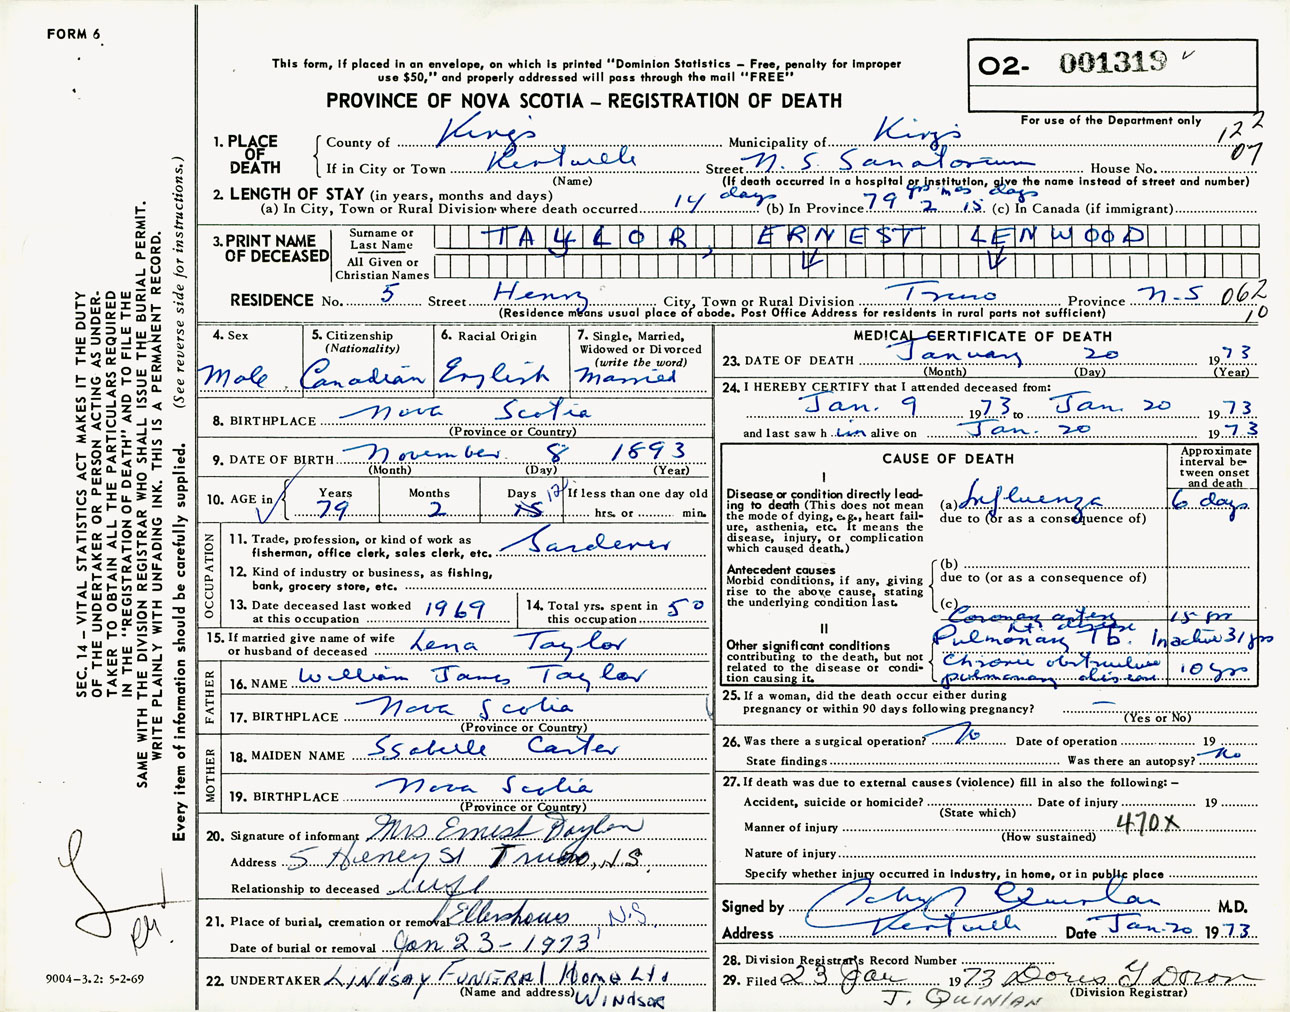 FORM 6
This form, if placed in an envelope, on which is printed "Dominion Statistics – Free, penalty for improper
use $50," and properly addressed will pass through the mail "FREE"
O2- 001319
PROVINCE OF NOVA SCOTIA – REGISTRATION OF DEATH
For use of the Department only
122
07
1. PLACE OF DEATH
County of Kings Municipality of Kings
If in City or Town Kentville Street N. S. Sanatorium House No.
(Name) (If death occurred in a hospital or institution, give the name instead of street and number)
2. LENGTH OF STAY (in years, months and days)
(a) In City, Town or Rural Division where death occurred 14 days (b) In Province 79 yrs 2 mos 15 days (c) In Canada (if immigrant)
3. PRINT NAME OF DECEASED
Surname or Last Name TAYLOR, ERNEST LENWOOD
All Given or Christian Names
RESIDENCE No. 5 Street Henry City, Town or Rural Division Truro Province N.S 062
10
(Residence means usual place of abode. Post Office Address for residents in rural parts not sufficient)
4. Sex
Male
5. Citizenship (Nationality)
Canadian
6. Racial Origin
English
7. Single, Married, Widowed or Divorced (write the word)
Married
8. BIRTHPLACE Nova Scotia
(Province or Country)
9. DATE OF BIRTH November 8 1893
(Month) (Day) (Year)
10. AGE in Years Months Days If less than one day old
79 2 15 12 hrs. or min.
OCCUPATION
11. Trade, profession, or kind of work as
fisherman, office clerk, sales clerk, etc. Gardener
12. Kind of industry or business, as fishing,
bank, grocery store, etc.
13. Date deceased last worked at this occupation 1969
14. Total yrs. spent in this occupation 50
15. If married give name of wife
or husband of deceased Lena Taylor
FATHER
16. NAME William James Taylor
17. BIRTHPLACE Nova Scotia
(Province or Country)
MOTHER
18. MAIDEN NAME Isabelle Carter
19. BIRTHPLACE Nova Scotia
(Province or Country)
20. Signature of informant Mrs Ernest Taylor
Address 5 Henery St Truro, N.S.
Relationship to deceased wife
21. Place of burial, cremation or removal Ellershouse N.S.
Date of burial or removal Jan 23 – 1973
22. UNDERTAKER LINDSAY FUNERAL Home Ltd
(Name and address) WINDSOR
MEDICAL CERTIFICATE OF DEATH
23. DATE OF DEATH January 20 1973
(Month) (Day) (Year)
24. I HEREBY CERTIFY that I attended deceased from:
Jan. 9 1973 to Jan. 20 1973
and last saw h im alive on Jan. 20 1973
CAUSE OF DEATH
Approximate interval between onset and death
I
Disease or condition directly leading to death (This does not mean the mode of dying, e.g., heart failure, asthenia, etc. It means the disease, injury, or complication which caused death.)
(a) Influenza 6 days
due to (or as a consequence of)
Antecedent causes
Morbid conditions, if any, giving rise to the above cause, stating the underlying condition last.
(b)
due to (or as a consequence of)
(c)
II
Other significant conditions
contributing to the death, but not related to the disease or condition causing it.
Coronary artery ht. disease 15 yrs
Pulmonary Tb. Inactive 31 yrs
Chronic obstructive pulmonary disease 10 yrs
25. If a woman, did the death occur either during
pregnancy or within 90 days following pregnancy? –
(Yes or No)
26. Was there a surgical operation? No Date of operation 19
State findings Was there an autopsy? No
27. If death was due to external causes (violence) fill in also the following:–
Accident, suicide or homicide? Date of injury 19
(State which)
Manner of injury 470X
(How sustained)
Nature of injury
Specify whether injury occurred in industry, in home, or in public place
Signed by J Quinlan M.D.
Address Kentville Date Jan. 20 1973
28. Division Registrar's Record Number
29. Filed 23 Jan 1973 Doris Y Doron
(Division Registrar)
J. QUINLAN
SEC. 14 – VITAL STATISTICS ACT MAKES IT THE DUTY
OF THE UNDERTAKER OR PERSON ACTING AS UNDER-
TAKER TO OBTAIN ALL THE PARTICULARS REQUIRED
IN THE "REGISTRATION OF DEATH" AND TO FILE THE
SAME WITH THE DIVISION REGISTRAR WHO SHALL ISSUE THE BURIAL PERMIT.
WRITE PLAINLY WITH UNFADING INK. THIS IS A PERMANENT RECORD.
Every item of information should be carefully supplied. (See reverse side for instructions.)
9004–3.2: 5-2-69